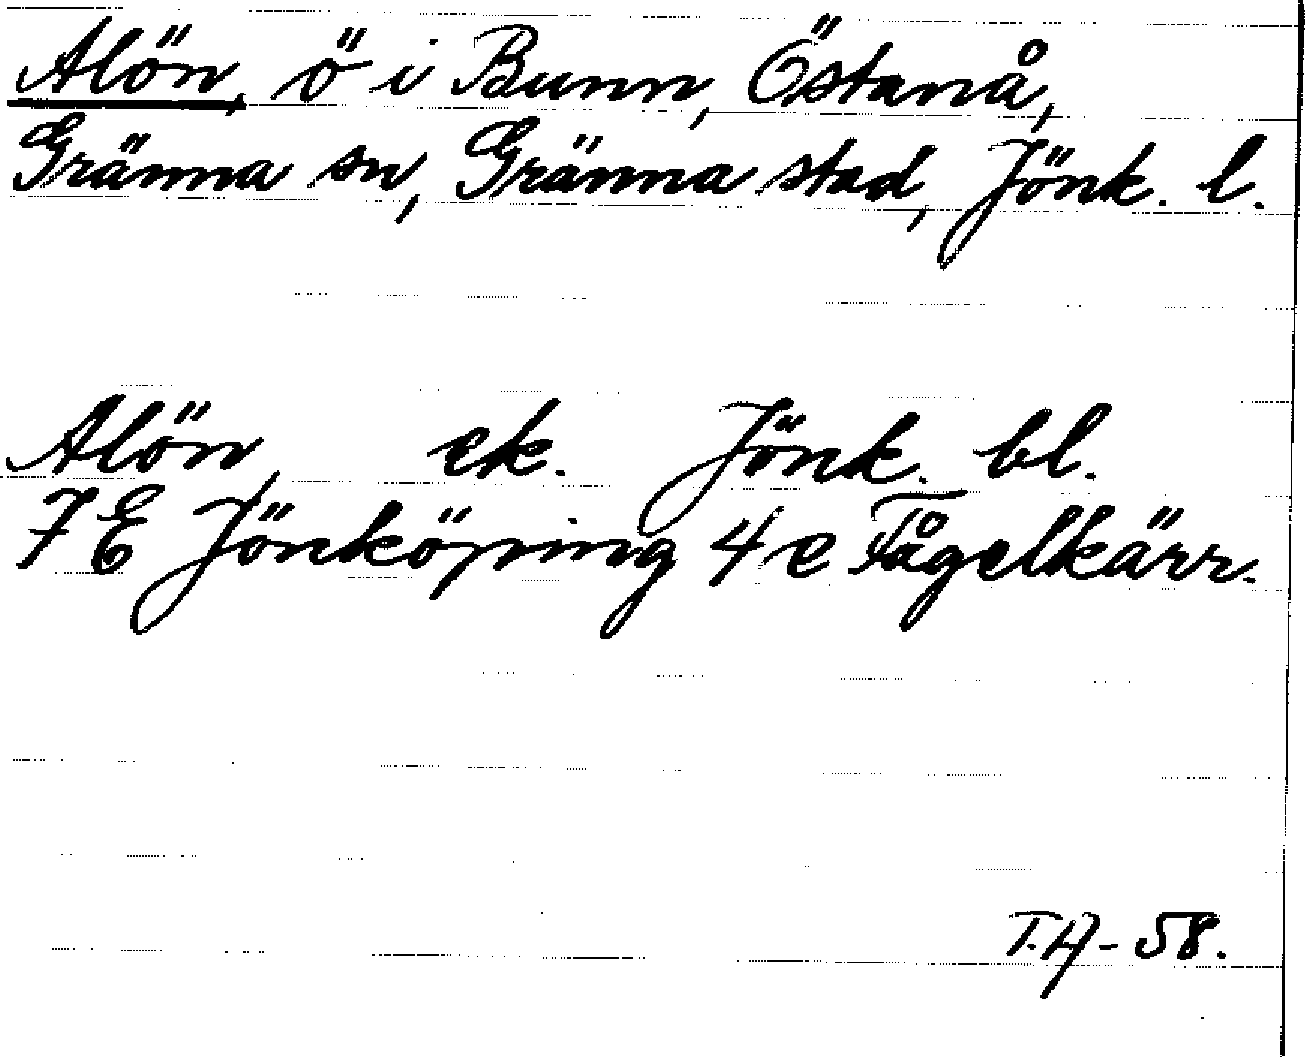 Alön, ö i Bunn, Östanå,
Gränna sn, Gränna stad, Jönk. l.
Alön, ek. Jönk. bl.
7 E Jönköping 4 e Fågelkärr.
T.A- 58.